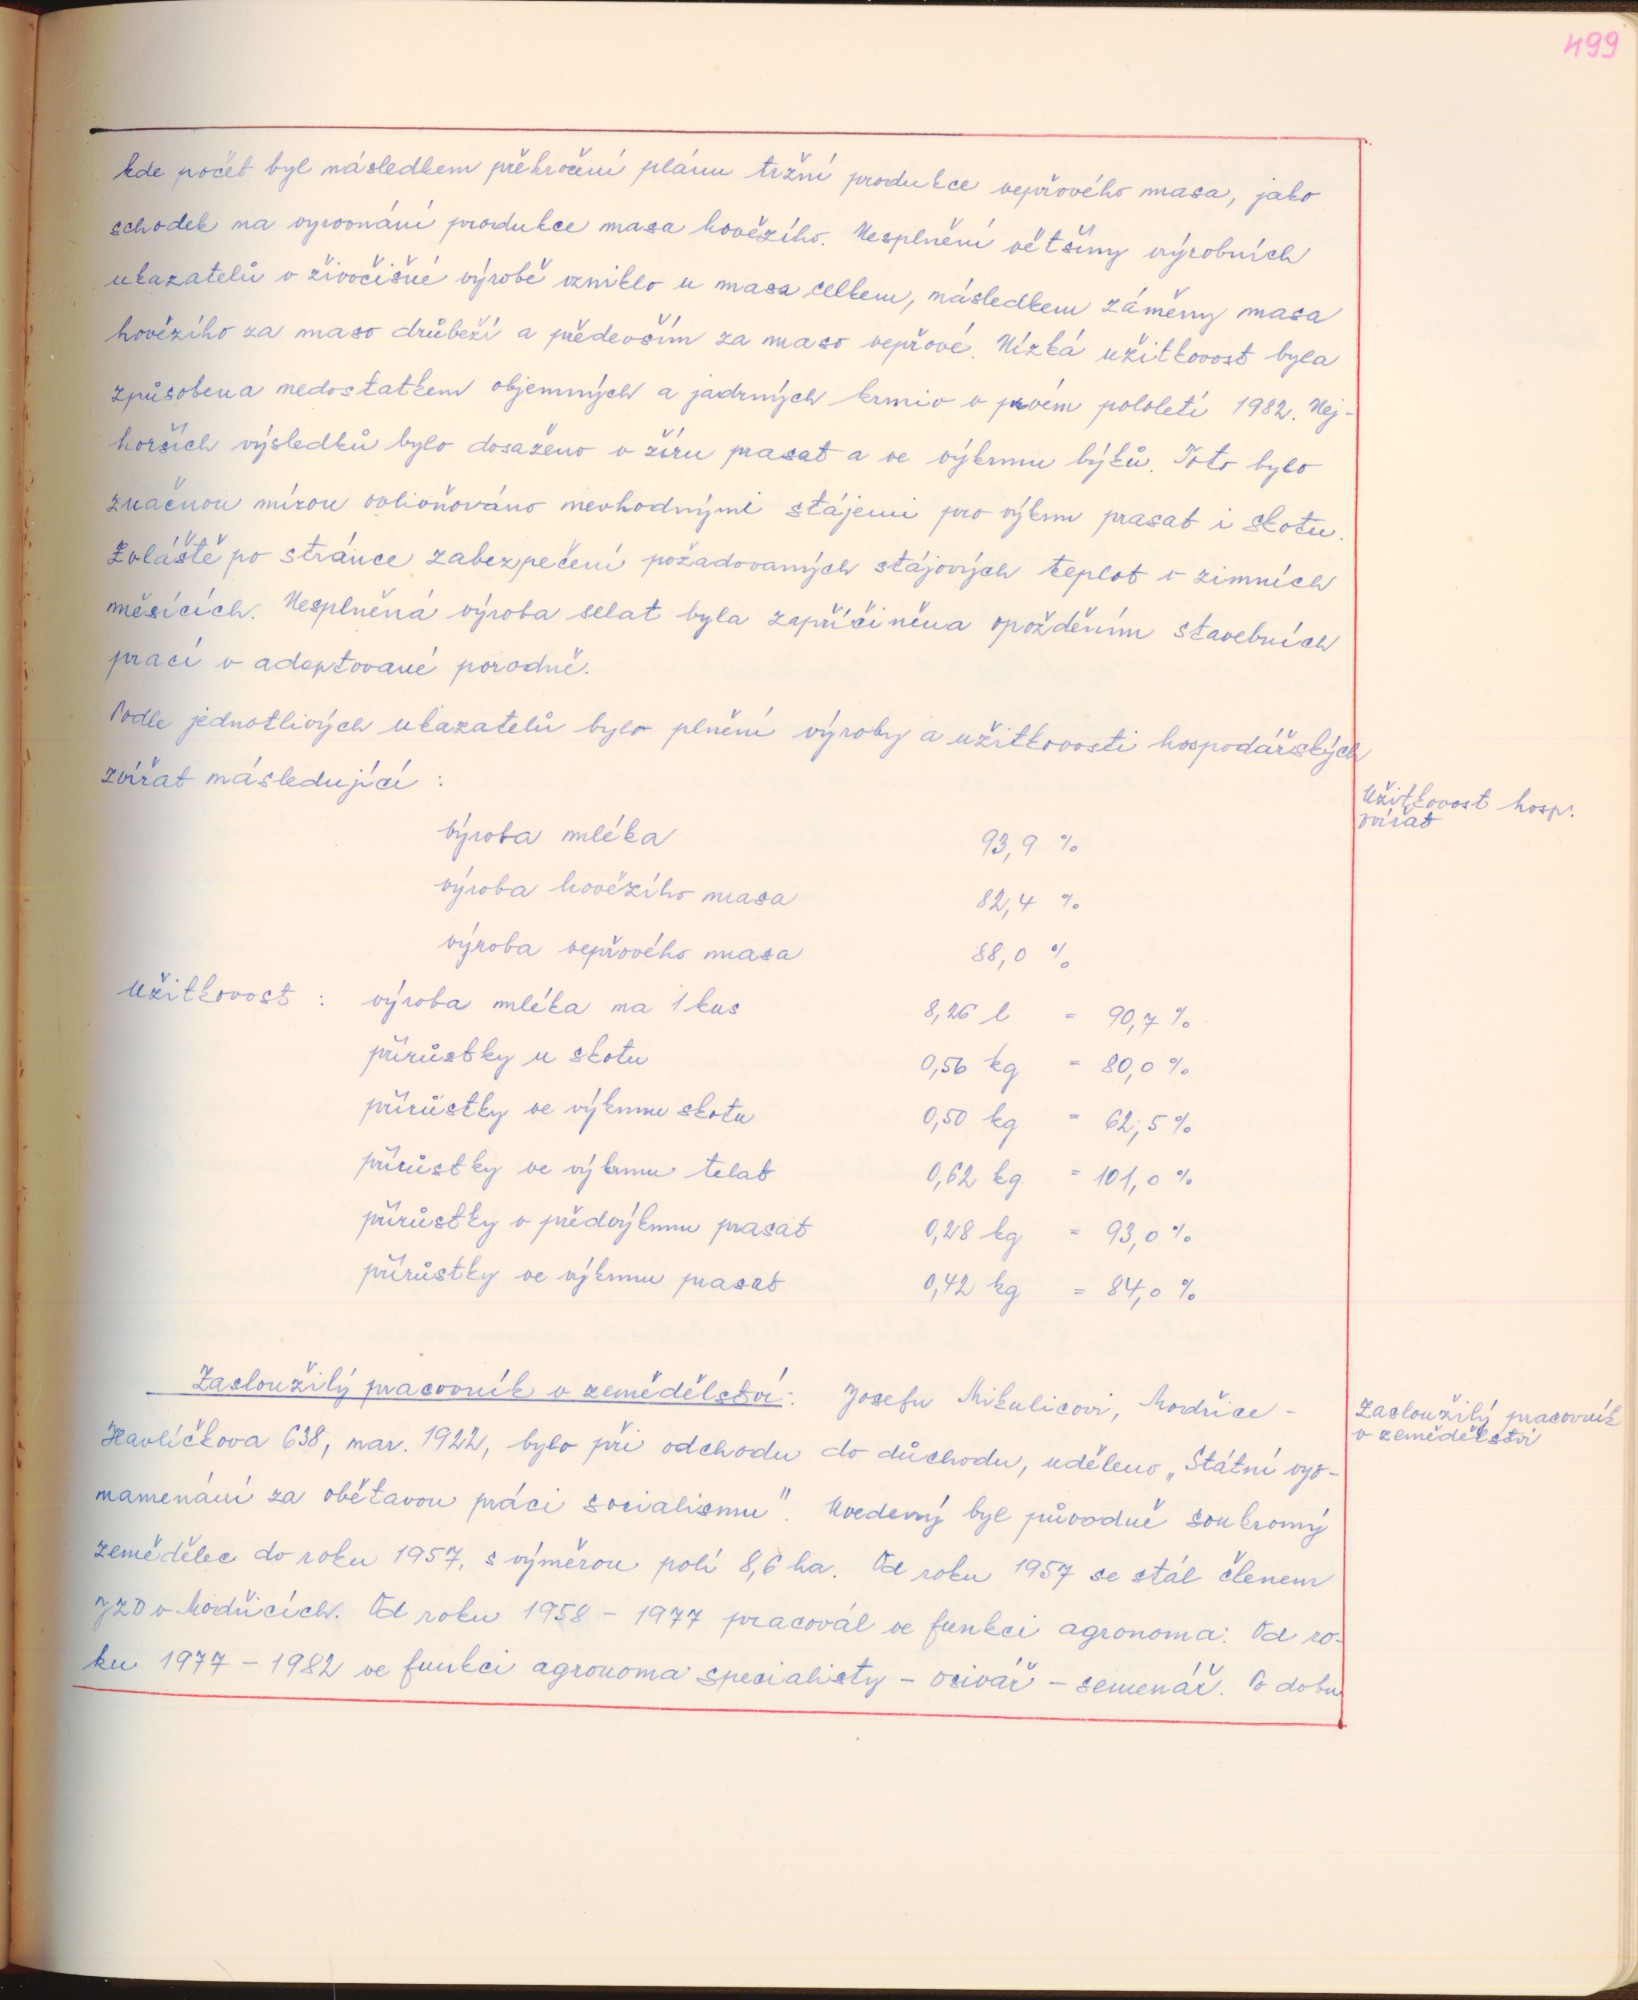 499
kde počet byl následkem překročení plánu tržní produkce vepřového masa, jako
schodek na vyrovnání produkce masa hovězího. Nesplnění většiny výrobních
ukazatelů v živočišné výrobě vzniklo u masa celkem, následkem záměny masa
hovězího za maso drůbeží a především za maso vepřové. Nízká užitkovost byla
způsobena nedostatkem objemných a jadrných krmiv v prvém pololetí 1982. Nej-
horších výsledků bylo dosaženo v žíru prasat a ve výkrmu býků. Toto bylo
značnou mírou ovlivňováno nevhodnými stájemi pro výkrm prasat i skotu.
Zvláště po stránce zabezpečení požadovaných stájových teplot v zimních
měsících. Nesplněná výroba selat byla zapříčiněna opožděním stavebních
prací v adaptované porodně.
Podle jednotlivých ukazatelů bylo plnění výroby a užitkovosti hospodářských
zvířat následující :
Užitkovost hosp.
zvířat
výroba mléka 93,9 %
výroba hovězího masa 82,4 %
výroba vepřového masa 88,0 %
Užitkovost : výroba mléka na 1 kus 8,26 l = 90,7 %
přírůstky u skotu 0,56 kg = 80,0 %
přírůstky ve výkrmu skotu 0,50 kg = 62,5 %
přírůstky ve výkrmu telat 0,62 kg = 101,0 %
přírůstky v předvýkrmu prasat 0,28 kg = 93,0 %
přírůstky ve výkrmu prasat 0,42 kg = 84,0 %
Zasloužilý pracovník v zemědělství: Josefu Mikulicovi, Modřice -
Zasloužilý pracovník
v zemědělství
Havlíčkova 638, nar. 1922, bylo při odchodu do důchodu, uděleno „Státní vyz-
namenání za obětavou práci socialismu". Uvedený byl původně soukromý
zemědělec do roku 1957, s výměrou polí 8,6 ha. Od roku 1957 se stál členem
JZD v Modřicích. Od roku 1958 - 1977 pracovál ve funkci agronoma. Od ro-
ku 1977 - 1982 ve funkci agronoma specialisty - osivář - semenář. Po dobu